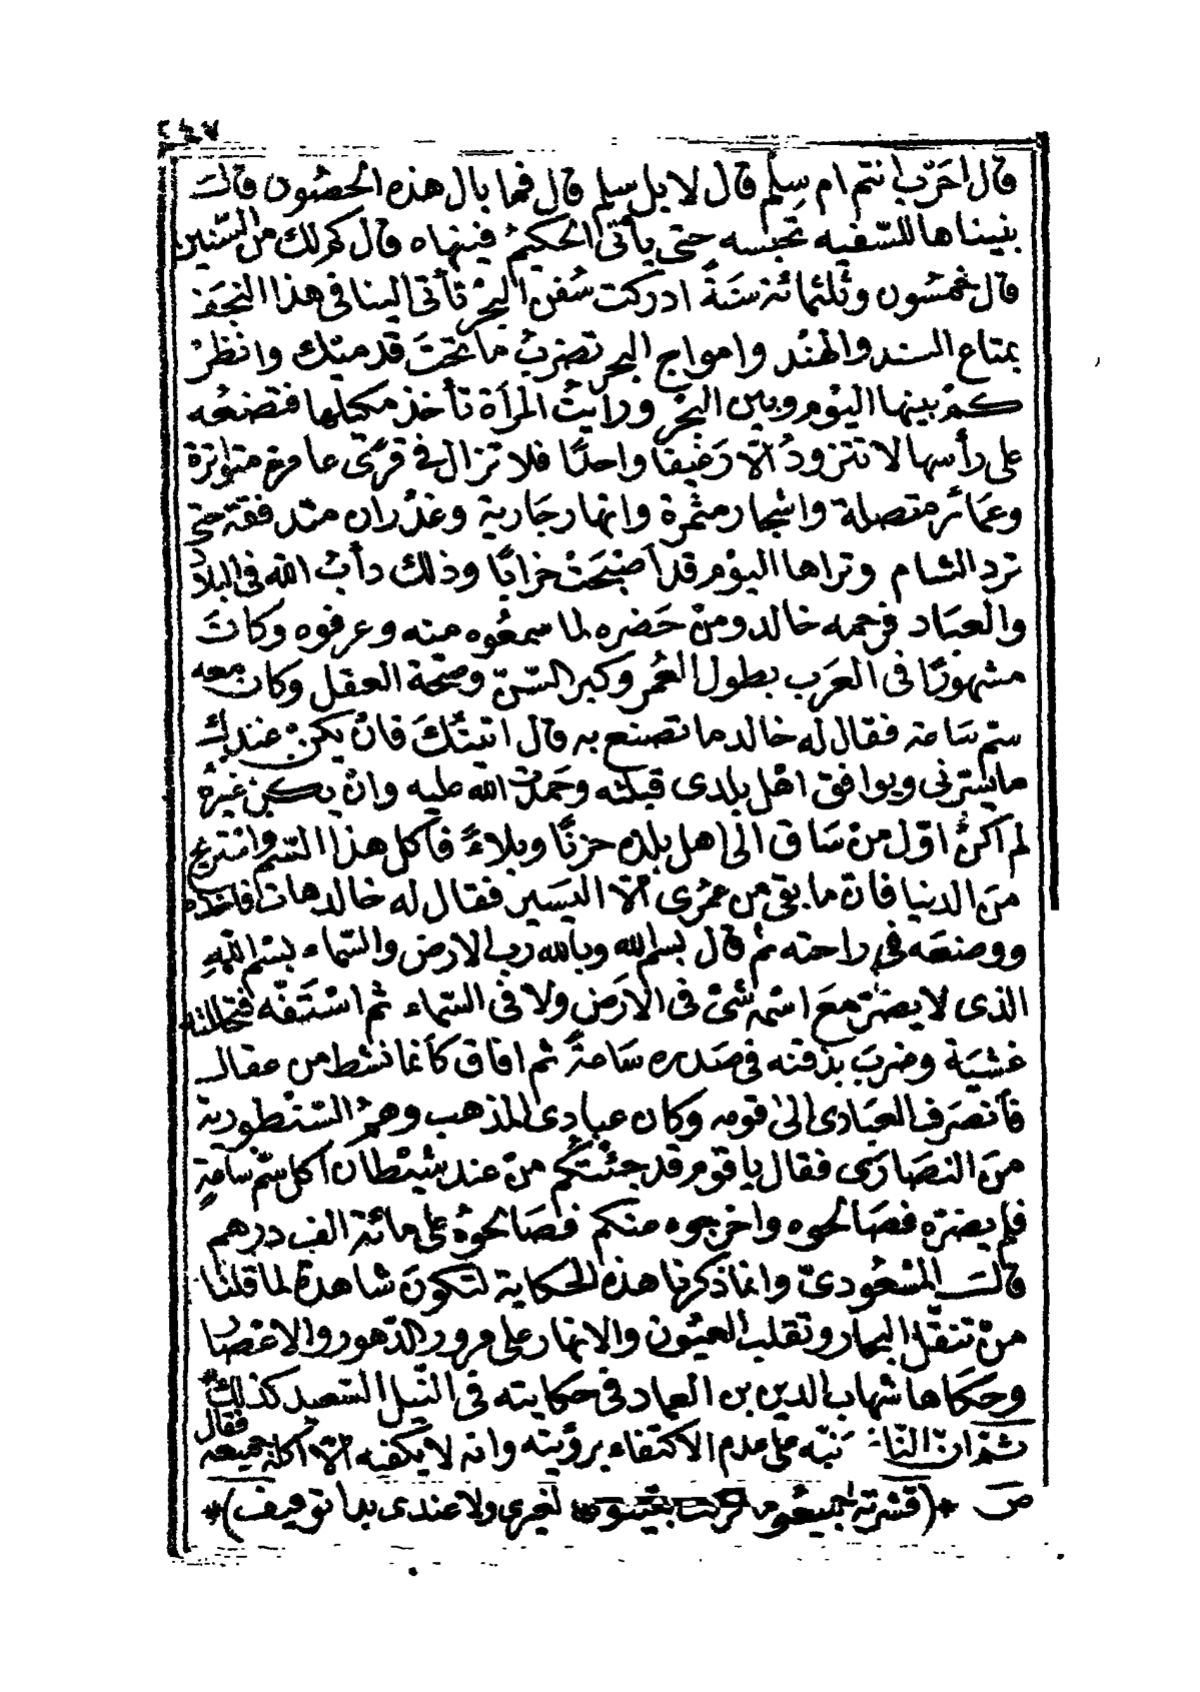 ٢٤٧
قال احَرْب انتم ام سِلْم قال لا بل سلم قال فما بال هذه الحصُون قالت
بنيناها للسّفيه تحبسه حتى يأتى الحكيمُ فينهاه قال كم لك من السّنين
قال خمسُون وثلثمائة سَنَةً ادركت سُفن البحْر تأتى الينا فى هذا النجَف
بمتاع السند والهنْد وامواج البحر تضربُ ما تحْتَ قدميْك وانظرْ
كمْ بينها اليوْم وبين البحْر ورأيتُ المرأة تأخذ مكتلها فتضعُه
على رأسها لا تتزودُ الّا رَغيفًا واحدًا فلا تزال فى قرًى عامرة متواترة
وعمَائر متصلة واشجار مثمرة وانهار جَارية وغدْران متدفقة حتى
ترد الشام وتراها اليوْم قد اصْبحَتْ خرابًا وذلك دأبُ الله فى البلاد
والعبَاد فرجمه خالد ومنْ حَضره لما سمعُوه منه وعرفوه وكانَ
مشهورًا فى العَرب بطول العُمر وكبر السّنّ وصحّة العقل وكان معه
سمّ سَاعة فقال له خالد ما تصنع به قال اتيتُكَ فانْ يكنْ عندك
ما يسُرّنى ويوافق اهْل بلدى قبلته وحَمدْت الله عليه وانْ يكن غيْره
لم اكنْ اوّل منْ سَاق الى اهل بلده حزنًا وبلاءً فآكل هذا السّم واستريح
منَ الدنيا فان ما بقى من عمُرى الّا اليَسير فقال له خالد هات فاخذه
ووضعَه فى راحته ثم قال بسم الله وبالله رب الارض والسّماء بسْم اللهِ
الذى لا يضرّ معَ اسْمه شئ فى الارَض ولا فى السّماء ثم اسْتَفّه فتجللته
غشيَة وضربَ بذقنه فى صَدره سَاعةً ثم افاق كأنما نشط من عقال
فأنصَرف العبَادى الىٰ قومه وكان عبادى المذهب وهمُ النسْطورية
منَ النصَارَى فقال يا قوم قد جئْتكُم منْ عند شيْطان اكل سمّ سَاعةٍ
فلم يضرّه فصَالحوه واخرجوه عنكم فصَالحوهُ على مائة الف درهم
قالَ المسْعُودىّ وانما ذكرنا هذه الحكاية لتكونَ شاهدة لما قلنَا
منْ تنقّل البحار وتقلب العيُون والانهار على مرور الدّهور والاعْصار
وحكاها شهاب الدين بن العماد فى حكايته فى النّيل السّعيد كذلكَ
ثمّ انّ النّا نَبّه على عدم الاكتفاء برؤيته وانه لا يكفيه الّا اكله جميعه فقال
ص *( قشرته لجميعُو لغيرى ولا عندى بدا توقيف )*